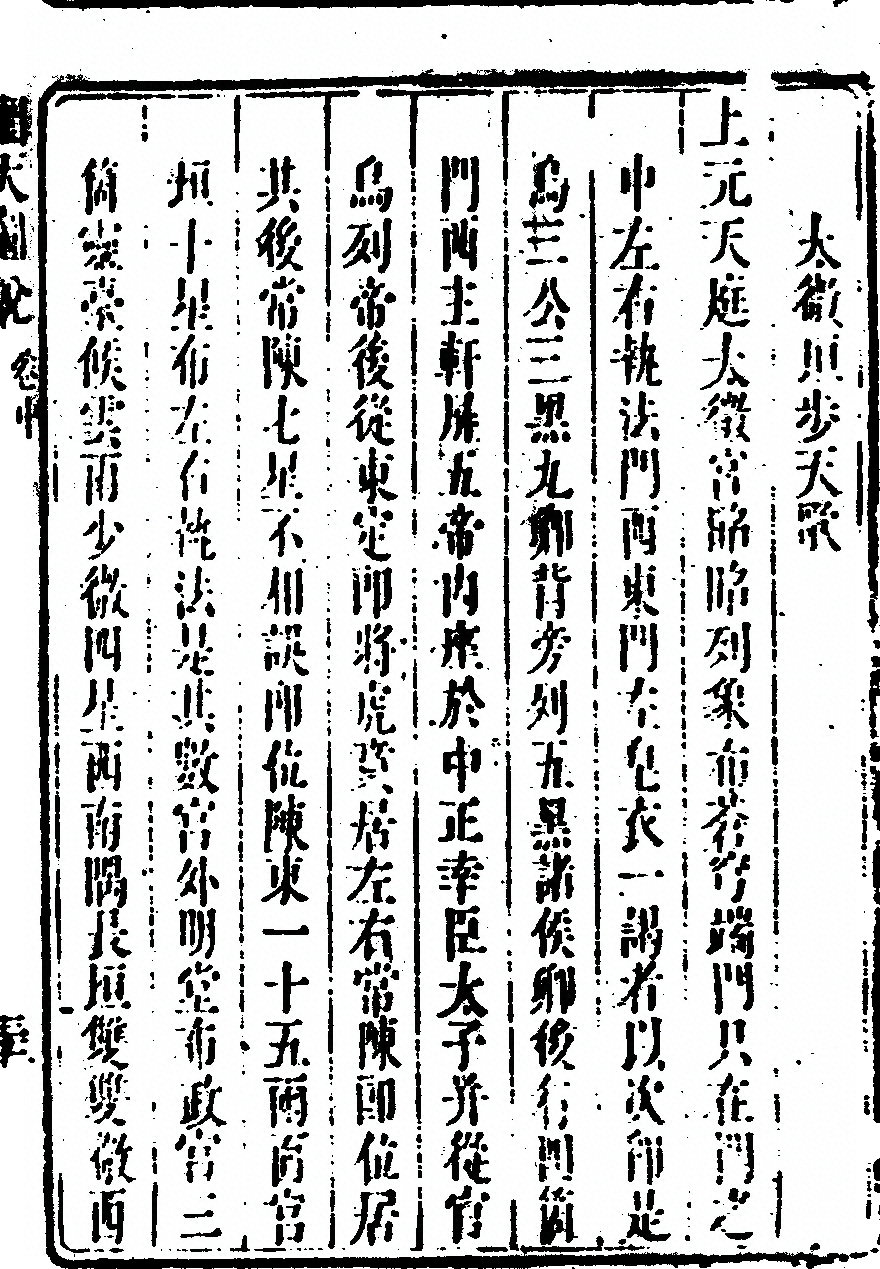 太微垣步天歌
上元天庭太微宮昭昭列象布蒼穹端門只在門之
中左右執法門西東門左皂衣一謁者以次卽是
烏三公三黑九卿背旁列五黑諸侯卿後行門西
門西主軒屏五帝內座於中正幸臣太子并從官
烏列帝後從東定郎將虎賁居左右常陳郎位居
其後常陳七星不相誤郎位陳東一十五兩面宮
垣十星布左右執法是其數宮外明堂布政宮三
箇靈臺候雲雨少微四星西南隅長垣雙雙微西
圖天圖說 卷中